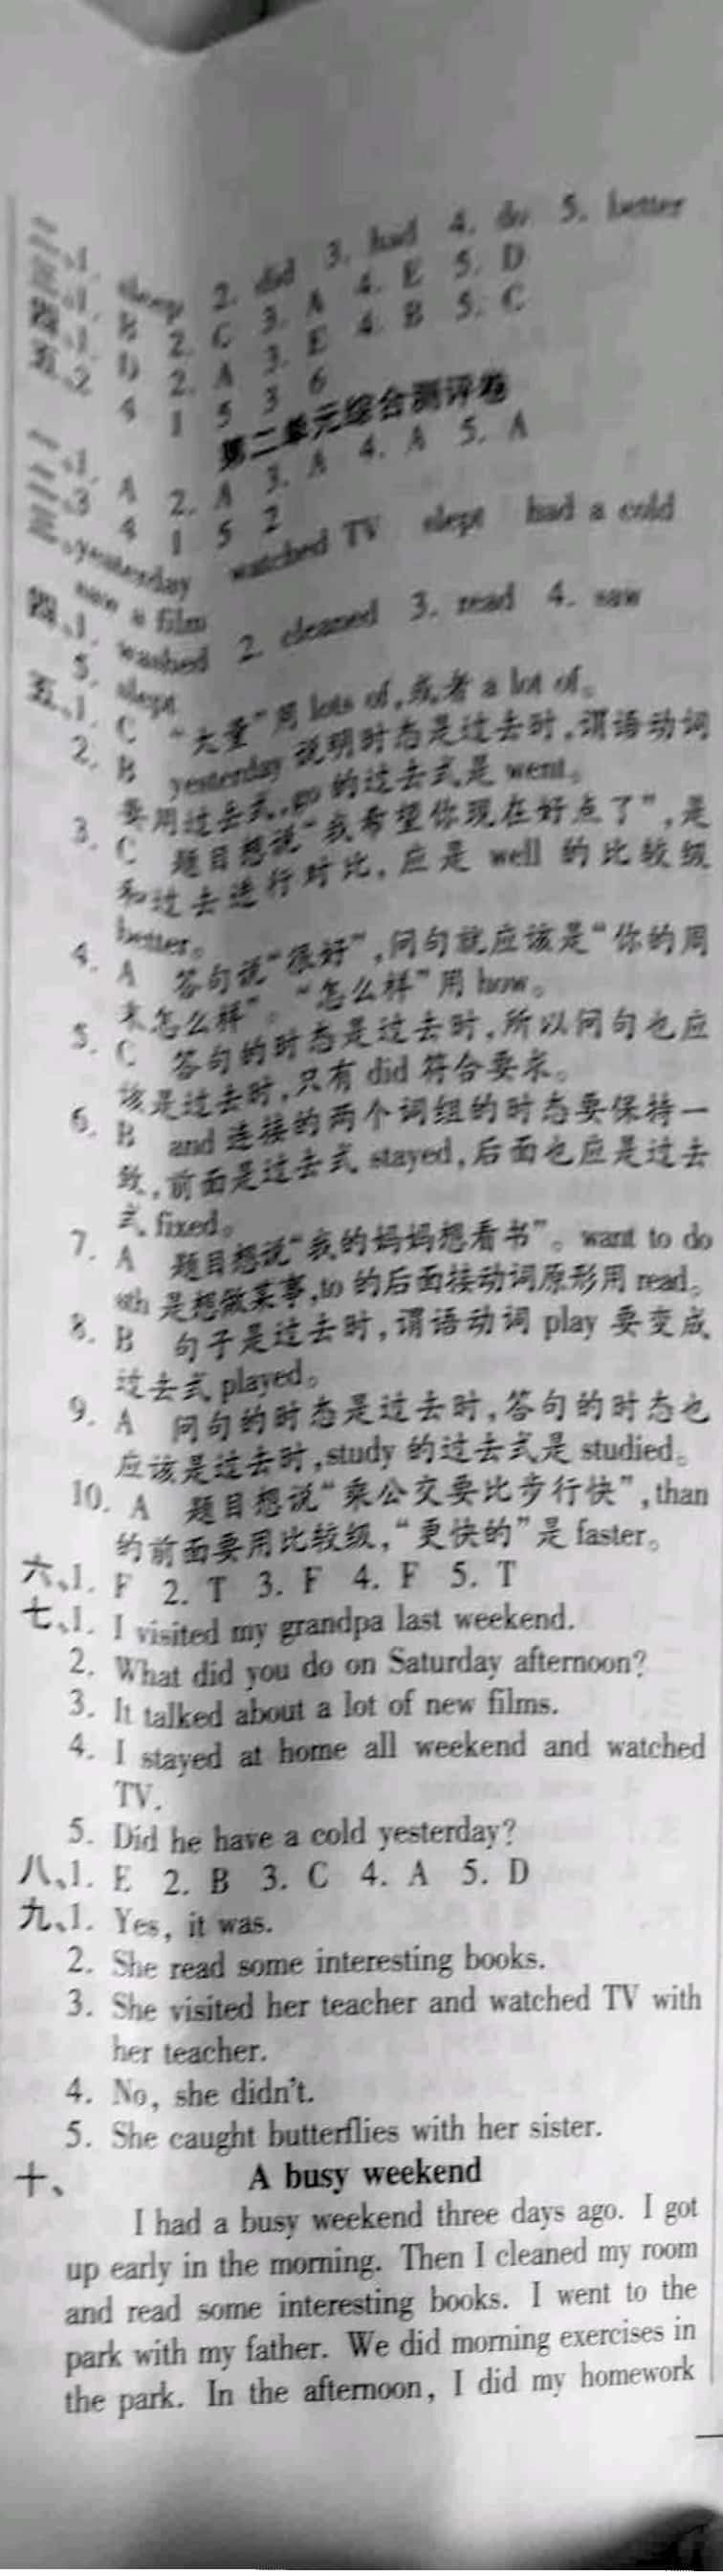 二、1. sleep 2. did 3. had 4. do 5. better
三、1. B 2. C 3. A 4. E 5. D
四、1. D 2. A 3. E 4. B 5. C
五、2 4 1 5 3 6
第二单元综合测评卷
一、1. A 2. A 3. A 4. A 5. A
二、3 4 1 5 2
三、yesterday watched TV slept had a cold
saw a film
四、1. washed 2. cleaned 3. read 4. saw
5. slept
五、1. C “大量”用 lots of,或者 a lot of。
2. B yesterday 说明时态是过去时,谓语动词
要用过去式,go 的过去式是 went。
3. C 题目想说“我希望你现在好点了”,是
和过去进行对比,应是 well 的比较级
better。
4. A 答句说“很好”,问句就应该是“你的周
末怎么样”。“怎么样”用 how。
5. C 答句的时态是过去时,所以问句也应
该是过去时,只有 did 符合要求。
6. B and 连接的两个词组的时态要保持一
致,前面是过去式 stayed,后面也应是过去
式 fixed。
7. A 题目想说“我的妈妈想看书”。want to do
sth 是想做某事,to 的后面接动词原形用 read。
8. B 句子是过去时,谓语动词 play 要变成
过去式 played。
9. A 问句的时态是过去时,答句的时态也
应该是过去时,study 的过去式是 studied。
10. A 题目想说“乘公交要比步行快”,than
的前面要用比较级,“更快的”是 faster。
六、1. F 2. T 3. F 4. F 5. T
七、1. I visited my grandpa last weekend.
2. What did you do on Saturday afternoon?
3. It talked about a lot of new films.
4. I stayed at home all weekend and watched
TV.
5. Did he have a cold yesterday?
八、1. E 2. B 3. C 4. A 5. D
九、1. Yes, it was.
2. She read some interesting books.
3. She visited her teacher and watched TV with
her teacher.
4. No, she didn't.
5. She caught butterflies with her sister.
十、 A busy weekend
I had a busy weekend three days ago. I got
up early in the morning. Then I cleaned my room
and read some interesting books. I went to the
park with my father. We did morning exercises in
the park. In the afternoon, I did my homework